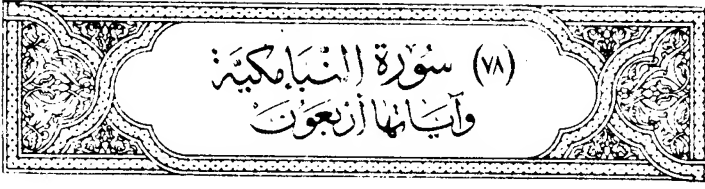 (٧٨) سُورَةُ النَّبَإِ مَكِيَّة
وَآيَاتُهَا أَرْبَعُونَ